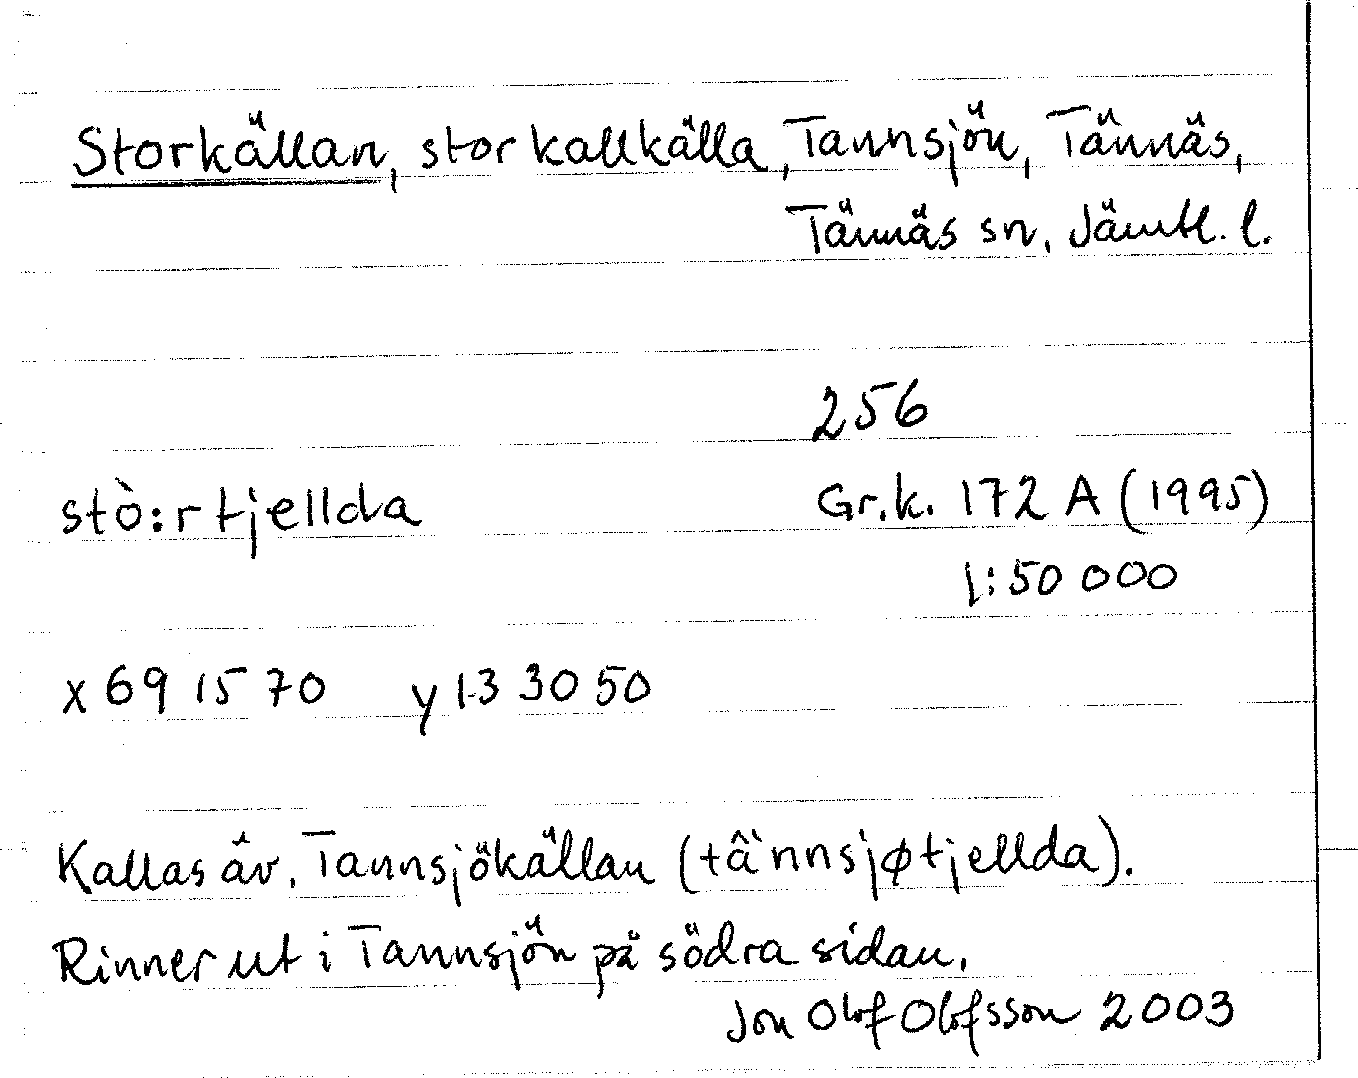 Storkällan, stor kallkälla, Tannsjön, Tännäs,
Tännäs sn, Jämtl. l.
256
stò:rtjellda
Gr.k. 172 A (1995)
1:50 000
x 69 15 70 y 13 30 50
Kallas äv. Tannsjökällan (tâ`nnsjøtjellda).
Rinner ut i Tannsjön på södra sidan.
Jon Olof Olofsson 2003